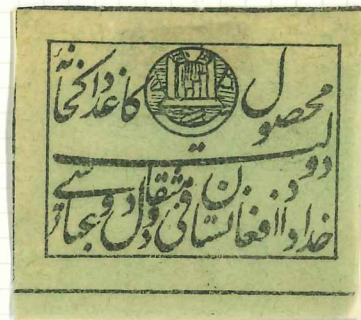 محصول کاغذ داکخانهٔ
دولت
خداداد افغانستان فی مثقال دو عباسی